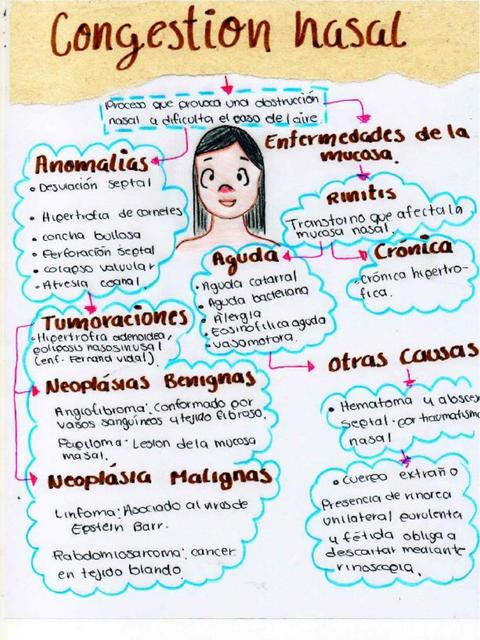 Congestion nasal
Proceso que provoca una obstrucción
nasal o dificulta el paso del aire
Enfermedades de la
mucosa.
Anomalias
• Desviación septal
• Hipertrofia de cornetes
• concha bullosa
• Perforación septal
• colapso valvular
• Atresia coanal.
Rinitis
Transtorno que afecta la
mucosa nasal.
Aguda
• Aguda catarral
• Aguda bacteriana
• Alergia
• Eosinofilica aguda
• vasomotora.
Crónica
• Crónica hipertro-
fica.
Tumoraciones
• Hipertrofia adenoidea,
poliposis nasosinusal
(enf. Fernand vidal).
Neoplásias Benignas
Angiofibroma: conformado por
vasos sanguíneos y tejido fibroso.
Papiloma: Lesion de la mucosa
nasal.
Neoplásia Malignas
Linfoma: Asociado al virus de
Epstein Barr.
Rabdomiosarcoma: cancer
en tejido blando.
otras causas
• Hematoma y absces
septal por traumatismo
nasal
• cuerpo extraño
Presencia de rinorea
unilateral purulenta
y fétida obliga a
descartar mediante
rinoscopia.